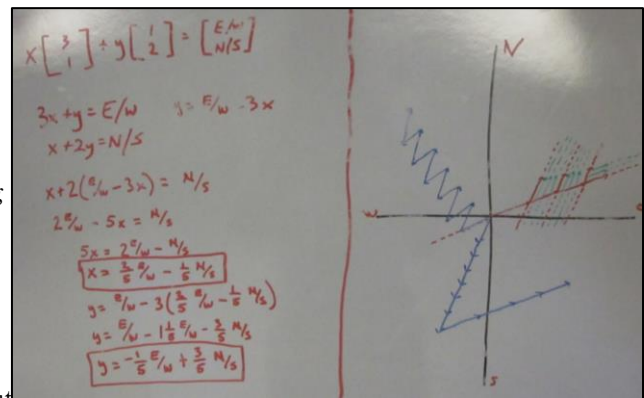 x[3 1] + y[1 2] = [E/W N/S]
3x+y = E/W y = E/W - 3x
x+2y = N/S
x+2(E/W - 3x) = N/S
2 E/W - 5x = N/S
5x = 2 E/W - N/S
x = 2/5 E/W - 1/5 N/S
y = E/W - 3(2/5 E/W - 1/5 N/S)
y = E/W - 1 1/5 E/W - 3/5 N/S
y = -1/5 E/W + 3/5 N/S
N
W
S